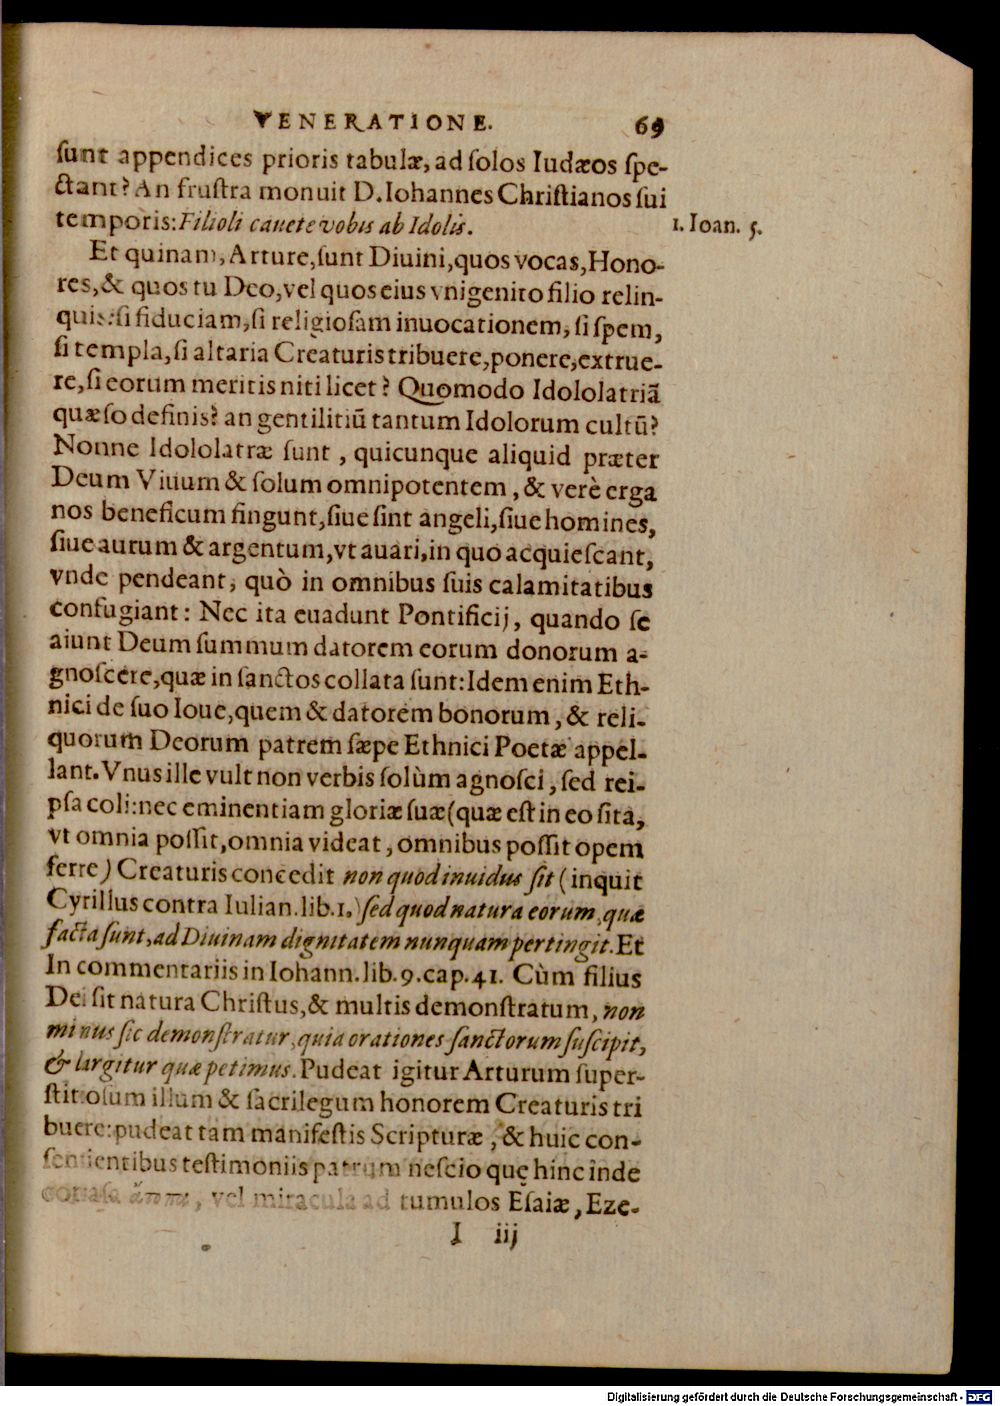 VENERATIONE. 69
sunt appendices prioris tabulæ, ad solos Iudæos spe-
ctant? An frustra monuit D. Iohannes Christianos sui
temporis: Filioli cauete vobis ab Idolis.
1. Ioan. 5.
Et quinam, Arture, sunt Diuini, quos vocas, Hono-
res, & quos tu Deo, vel quos eius vnigenito filio relin-
quis: si fiduciam, si religiosam inuocationem, si spem,
si templa, si altaria Creaturis tribuere, ponere, extrue-
re, si eorum meritis niti licet? Quomodo Idololatriã
quæso definis? an gentilitiũ tantum Idolorum cultũ?
Nonne Idololatræ sunt, quicunque aliquid præter
Deum Viuum & solum omnipotentem, & verè erga
nos beneficum fingunt, siue sint angeli, siue homines,
siue aurum & argentum, vt auari, in quo acquiescant,
vnde pendeant, quò in omnibus suis calamitatibus
confugiant: Nec ita euadunt Pontificij, quando se
aiunt Deum summum datorem eorum donorum a-
gnoscere, quæ in sanctos collata sunt: Idem enim Eth-
nici de suo Ioue, quem & datorem bonorum, & reli-
quorum Deorum patrem sæpe Ethnici Poetæ appel-
lant. Vnus ille vult non verbis solùm agnosci, sed rei-
psa coli: nec eminentiam gloriæ suæ (quæ est in eo sita,
vt omnia possit, omnia videat, omnibus possit opem
ferre) Creaturis concedit non quod inuidus sit (inquit
Cyrillus contra Iulian. lib. 1.) sed quod natura eorum, quæ
facta sunt, ad Diuinam dignitatem nunquam pertingit. Et
In commentariis in Iohann. lib. 9. cap. 41. Cùm filius
Dei sit natura Christus, & multis demonstratum, non
minus sic demonstratur, quia orationes sanctorum suscipit,
& largitur quæ petimus. Pudeat igitur Arturum super-
stitiosum illum & sacrilegum honorem Creaturis tri
buere: pudeat tam manifestis Scripturæ, & huic con-
sentientibus testimoniis patrum nescio quę hinc inde
, vel miracula ad tumulos Esaiæ, Eze-
I iij
Digitalisierung gefördert durch die Deutsche Forschungsgemeinschaft - DFG